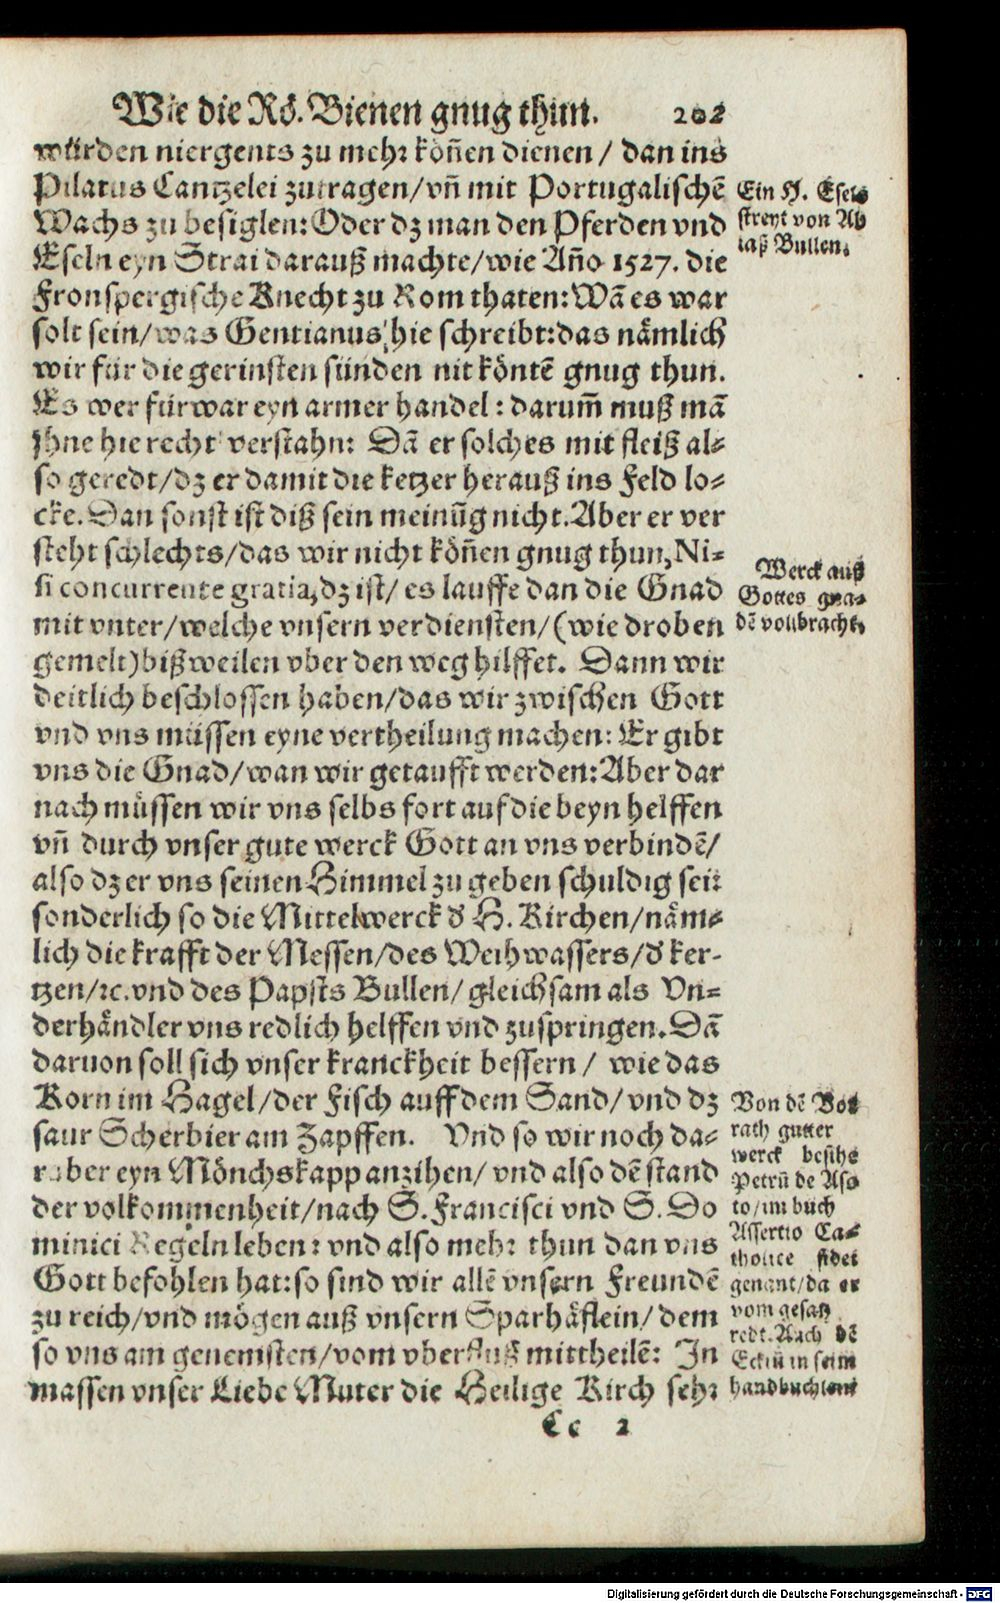 Wie die Rö. Bienen gnug thun. 202
würden niergents zu mehr könn̄en dienen / dan ins
Pilatus Cantzelei zutragen/vn̄ mit Portugalischē
Wachs zu besiglen: Oder dz man den Pferden vnd
Eseln eyn Strai darauß machte/wie Añ̄o 1527. die
Fronspergische Knecht zu Rom thaten: Wā es war
solt sein/was Gentianus hie schreibt: das nämlich
wir für die gerinsten sünden nit köntē gnug thun.
Es wer fürwar eyn armer handel: darum̄ muß mā
jhne hie recht verstahn: Dā er solches mit fleiß al-
so geredt/dz er damit die ketzer herauß ins Feld lo-
cke. Dan sonst ist diß sein meinūg nicht. Aber er ver
steht schlechts/das wir nicht kön̄en gnug thun, Ni-
si concurrente gratia, dz ist/ es lauffe dan die Gnad
mit vnter/welche vnsern verdiensten/(wie droben
gemelt) bißweilen vber den weg hilffet. Dann wir
deitlich beschlossen haben/das wir zwischen Gott
vnd vns müssen eyne vertheilung machen: Er gibt
vns die Gnad/wan wir getaufft werden: Aber dar
nach müssen wir vns selbs fort auf die beyn helffen
vn̄ durch vnser gute werck Gott an vns verbindē/
also dz er vns seinen Himmel zu geben schuldig sei:
sonderlich so die Mittelwerck d̓ H. Kirchen/näm-
lich die krafft der Messen/des Weihwassers/d̓ ker-
tzen/ꝛc. vnd des Papsts Bullen/ gleichsam als Vn-
derhändler vns redlich helffen vnd zuspringen. Dā
daruon soll sich vnser kranckheit bessern / wie das
Korn im Hagel/der Fisch auff dem Sand/ vnd dz
saur Scherbier am Zapffen. Vnd so wir noch da-
rüber eyn Mönchskapp anzihen/ vnd also dē stand
der volkommenheit/nach S. Francisci vnd S. Do
minici Regeln leben: vnd also mehr thun dan vns
Gott befohlen hat: so sind wir allē vnsern Freundē
zu reich/vnd mögen auß vnsern Sparhäflein/ dem
so vns am genemsten/vom vberfluß mittheilē: In
massen vnser Liebe Muter die Heilige Kirch sehr
Cc 2
Ein H. Esels
streyt von Ab
laß Bullen.
Werck auß
Gottes gna-
dē vollbracht.
Von dē Vor
rath gutter
werck besihe
Petrū de Aso
to/im buch
Assertio Ca-
tholice fidei
genant/da er
vom gesatz
redt. Auch dē
Eckiū in seim
handbuchlein
Digitalisierung gefördert durch die Deutsche Forschungsgemeinschaft - DFG